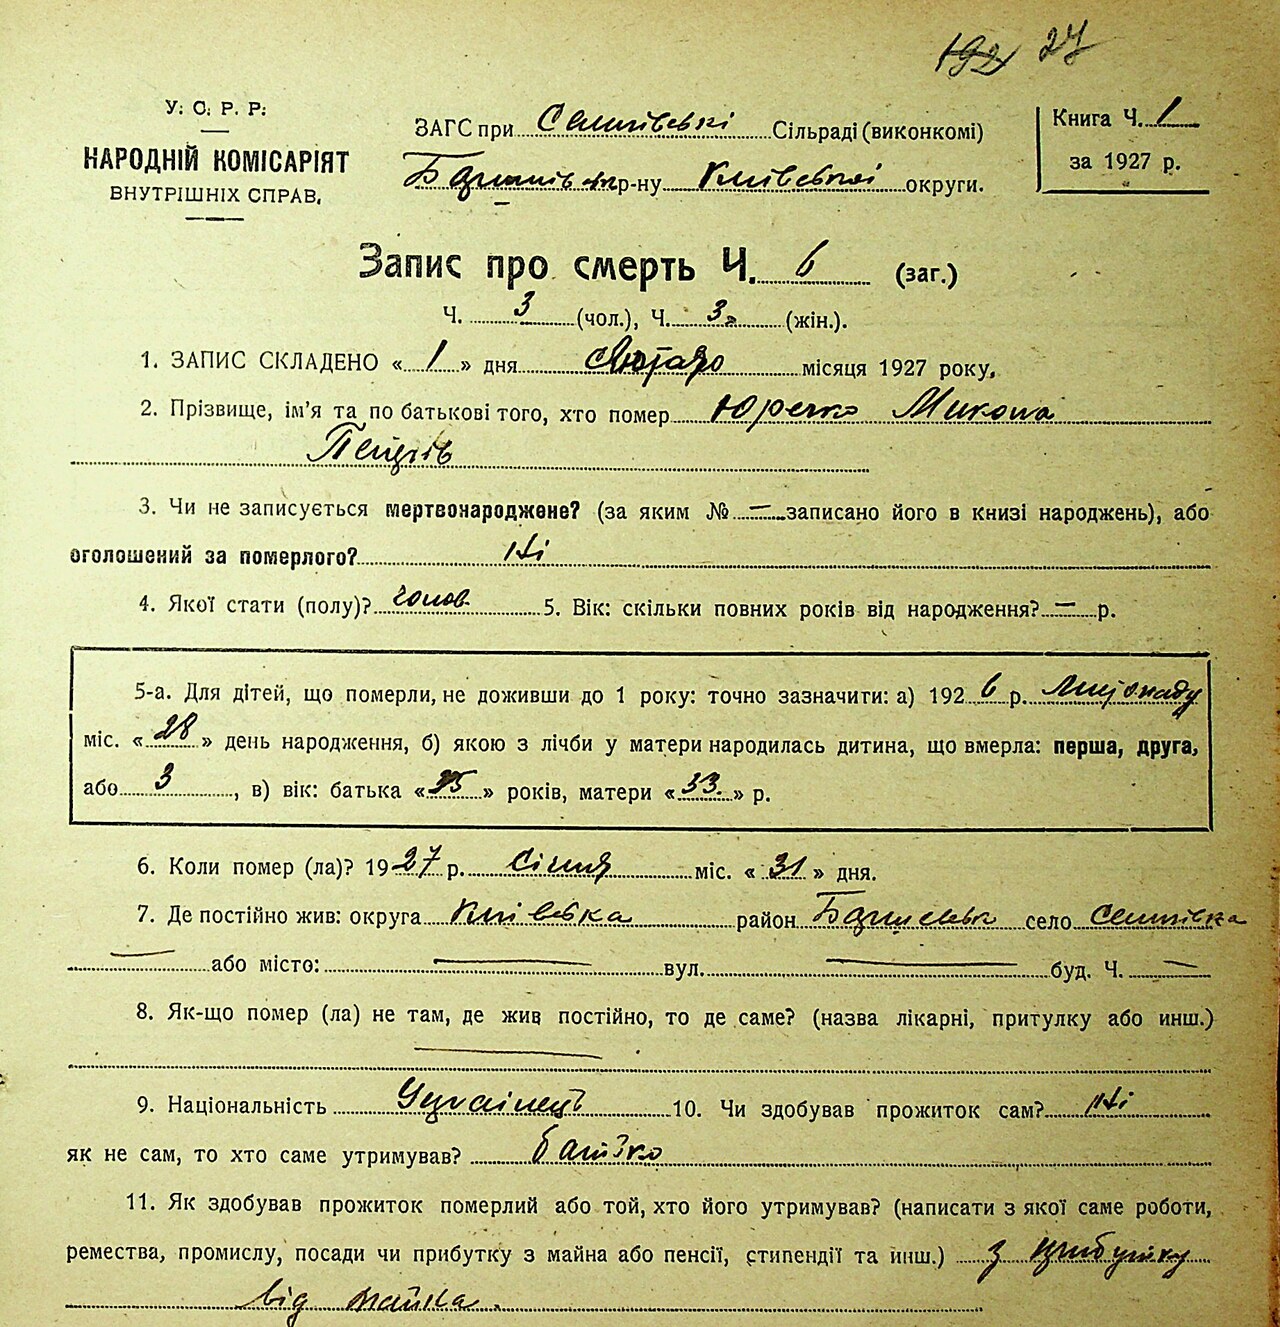 192 27
У. С. Р. Р.
НАРОДНІЙ КОМІСАРІЯТ
ВНУТРІШНІХ СПРАВ.
ЗАГС при Семипівські Сільраді (виконкомі)
р-ну Київської округи.
Книга Ч. 1
за 1927 р.
Запис про смерть Ч. 6 (заг.)
Ч. 3 (чол.), Ч. 3 (жін.).
1. ЗАПИС СКЛАДЕНО « 1 » дня Лютаго місяця 1927 року.
2. Прізвище, ім'я та по батькові того, хто помер Юречко Микола
3. Чи не записується мертвонароджене? (за яким № — записано його в книзі народжень), або
оголошений за померлого? Ні
4. Якої стати (полу)? чолов 5. Вік: скільки повних років від народження? — р.
5-а. Для дітей, що померли, не доживши до 1 року: точно зазначити: а) 1926 р. Листопаду
міс. « 28 » день народження, б) якою з лічби у матери народилась дитина, що вмерла: перша, друга,
або 3, в) вік: батька « 35 » років, матери « 33 » р.
6. Коли помер (ла)? 1927 р. Січня міс. « 31 » дня.
7. Де постійно жив: округа Київська район село
— або місто: — вул. — буд. Ч. —
8. Як-що помер (ла) не там, де жив постійно, то де саме? (назва лікарні, притулку або инш.)
—
9. Національність Українець 10. Чи здобував прожиток сам? Ні
як не сам, то хто саме утримував? батько
11. Як здобував прожиток померлий або той, хто його утримував? (написати з якої саме роботи,
ремества, промислу, посади чи прибутку з майна або пенсії, стипендії та инш.) з прибутку
від майна.